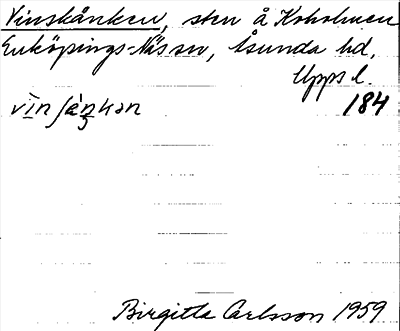 Vinskånken, sten å Koholmen
Enköpings-Näs sn, Åsunda hd,
Upps l.
184
Birgitta Carlsson 1959